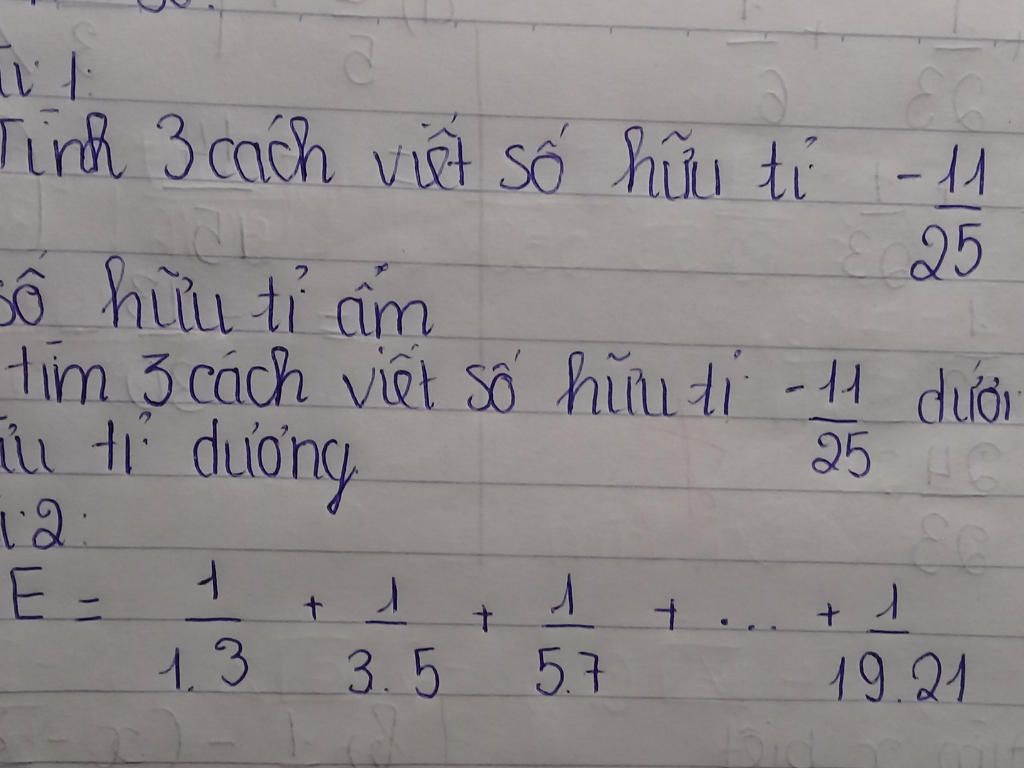 ài 1:
Tính 3 cách viết số hữu tỉ -11/25
số hữu tỉ âm
tìm 3 cách viết số hữu tỉ -11/25 dưới
ữu tỉ dương
i 2:
E = 1/1.3 + 1/3.5 + 1/5.7 + ... + 1/19.21